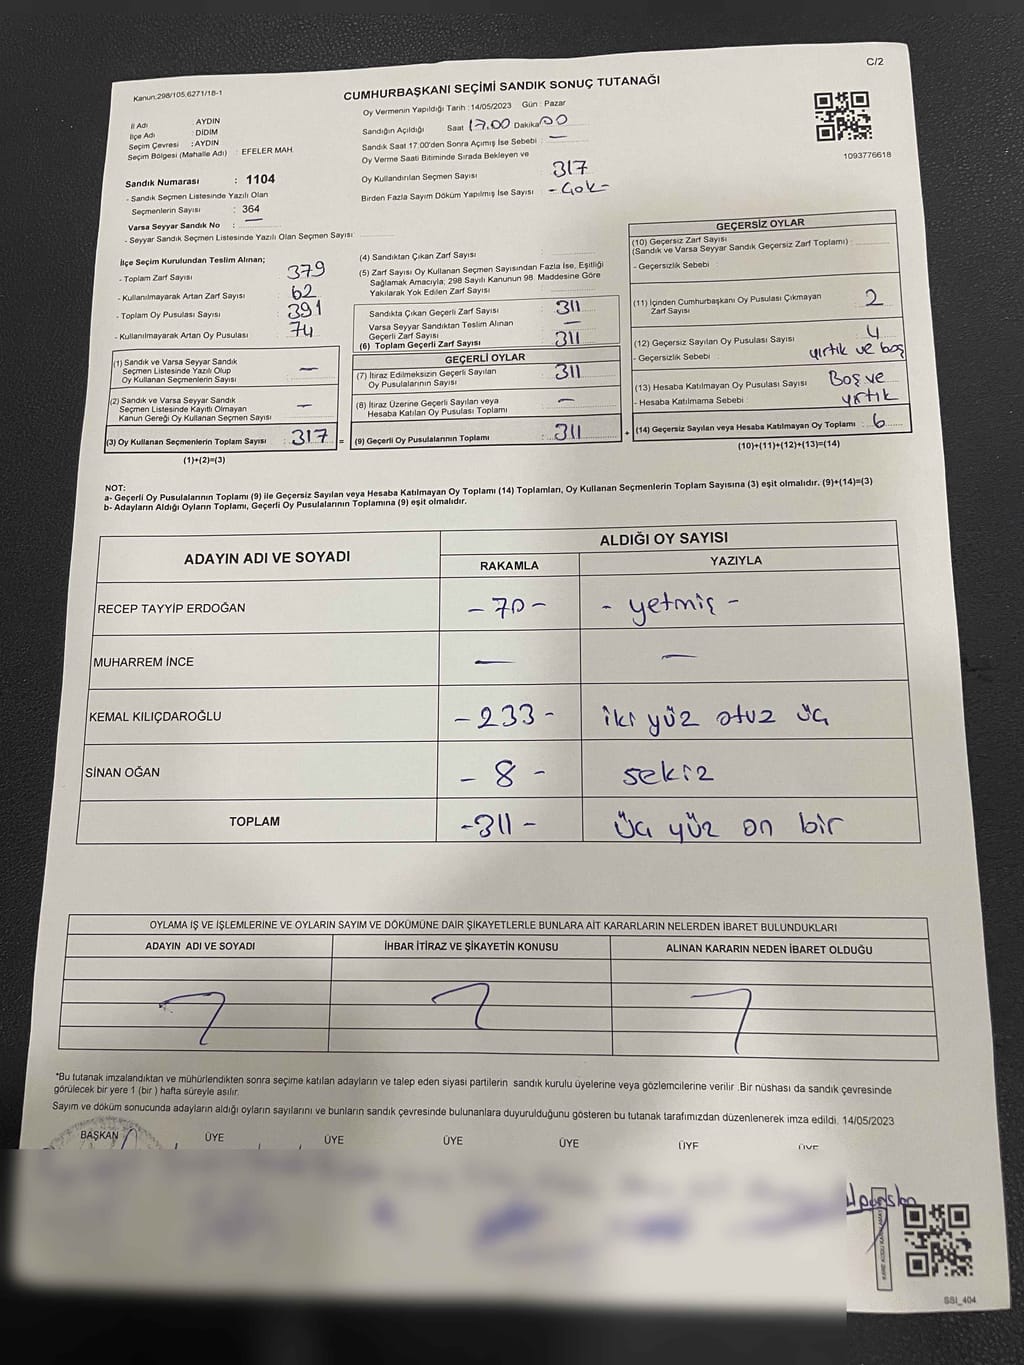 C/2
Kanun:298/105,6271/18-1
CUMHURBAŞKANI SEÇİMİ SANDIK SONUÇ TUTANAĞI
Oy Vermenin Yapıldığı Tarih : 14/05/2023 Gün : Pazar
İl Adı : AYDIN
İlçe Adı : DİDİM
Seçim Çevresi : AYDIN
Seçim Bölgesi (Mahalle Adı) : EFELER MAH.
Sandığın Açıldığı Saat 17.00 Dakika 00
Sandık Saat 17:00'den Sonra Açımış İse Sebebi : —
Oy Verme Saati Bitiminde Sırada Bekleyen ve
Oy Kullandırılan Seçmen Sayısı : 317
Birden Fazla Sayım Döküm Yapılmış İse Sayısı :
1093776618
Sandık Numarası : 1104
- Sandık Seçmen Listesinde Yazılı Olan
Seçmenlerin Sayısı : 364
Varsa Seyyar Sandık No : —
- Seyyar Sandık Seçmen Listesinde Yazılı Olan Seçmen Sayısı :
İlçe Seçim Kurulundan Teslim Alınan;
- Toplam Zarf Sayısı : 379
- Kullanılmayarak Artan Zarf Sayısı : 62
- Toplam Oy Pusulası Sayısı : 391
- Kullanılmayarak Artan Oy Pusulası : 74
(1) Sandık ve Varsa Seyyar Sandık
Seçmen Listesinde Yazılı Olup
Oy Kullanan Seçmenlerin Sayısı : —
(2) Sandık ve Varsa Seyyar Sandık
Seçmen Listesinde Kayıtlı Olmayan
Kanun Gereği Oy Kullanan Seçmen Sayısı : —
(3) Oy Kullanan Seçmenlerin Toplam Sayısı : 317 =
(1)+(2)=(3)
(4) Sandıktan Çıkan Zarf Sayısı :
(5) Zarf Sayısı Oy Kullanan Seçmen Sayısından Fazla İse, Eşitliği
Sağlamak Amacıyla; 298 Sayılı Kanunun 98. Maddesine Göre
Yakılarak Yok Edilen Zarf Sayısı :
Sandıkta Çıkan Geçerli Zarf Sayısı : 311
Varsa Seyyar Sandıktan Teslim Alınan
Geçerli Zarf Sayısı : —
(6) Toplam Geçerli Zarf Sayısı : 311
GEÇERLİ OYLAR
(7) İtiraz Edilmeksizin Geçerli Sayılan
Oy Pusulalarının Sayısı : 311
(8) İtiraz Üzerine Geçerli Sayılan veya
Hesaba Katılan Oy Pusulası Toplamı : —
(9) Geçerli Oy Pusulalarının Toplamı : 311 +
GEÇERSİZ OYLAR
(10) Geçersiz Zarf Sayısı
(Sandık ve Varsa Seyyar Sandık Geçersiz Zarf Toplamı) :
- Geçersizlik Sebebi :
(11) İçinden Cumhurbaşkanı Oy Pusulası Çıkmayan
Zarf Sayısı : 2
(12) Geçersiz Sayılan Oy Pusulası Sayısı : 4
- Geçersizlik Sebebi : yırtık ve boş
(13) Hesaba Katılmayan Oy Pusulası Sayısı : Boş ve
- Hesaba Katılmama Sebebi : yrtık
(14) Geçersiz Sayılan veya Hesaba Katılmayan Oy Toplamı : 6
(10)+(11)+(12)+(13)=(14)
NOT:
a- Geçerli Oy Pusulalarının Toplamı (9) ile Geçersiz Sayılan veya Hesaba Katılmayan Oy Toplamı (14) Toplamları, Oy Kullanan Seçmenlerin Toplam Sayısına (3) eşit olmalıdır. (9)+(14)=(3)
b- Adayların Aldığı Oyların Toplamı, Geçerli Oy Pusulalarının Toplamına (9) eşit olmalıdır.
ADAYIN ADI VE SOYADI
ALDIĞI OY SAYISI
RAKAMLA YAZIYLA
RECEP TAYYİP ERDOĞAN - 70 - - yetmiş -
MUHARREM İNCE — —
KEMAL KILIÇDAROĞLU - 233 - iki yüz otuz üç
SİNAN OĞAN - 8 - sekiz
TOPLAM - 311 - Üç yüz on bir
OYLAMA İŞ VE İŞLEMLERİNE VE OYLARIN SAYIM VE DÖKÜMÜNE DAİR ŞİKAYETLERLE BUNLARA AİT KARARLARIN NELERDEN İBARET BULUNDUKLARI
ADAYIN ADI VE SOYADI İHBAR İTİRAZ VE ŞİKAYETİN KONUSU ALINAN KARARIN NEDEN İBARET OLDUĞU
*Bu tutanak imzalandıktan ve mühürlendikten sonra seçime katılan adayların ve talep eden siyasi partilerin sandık kurulu üyelerine veya gözlemcilerine verilir .Bir nüshası da sandık çevresinde
görülecek bir yere 1 (bir ) hafta süreyle asılır.
Sayım ve döküm sonucunda adayların aldığı oyların sayılarını ve bunların sandık çevresinde bulunanlara duyurulduğunu gösteren bu tutanak tarafımızdan düzenlenerek imza edildi. 14/05/2023
BAŞKAN ÜYE ÜYE ÜYE ÜYE ÜYE ÜYE
SSI_404